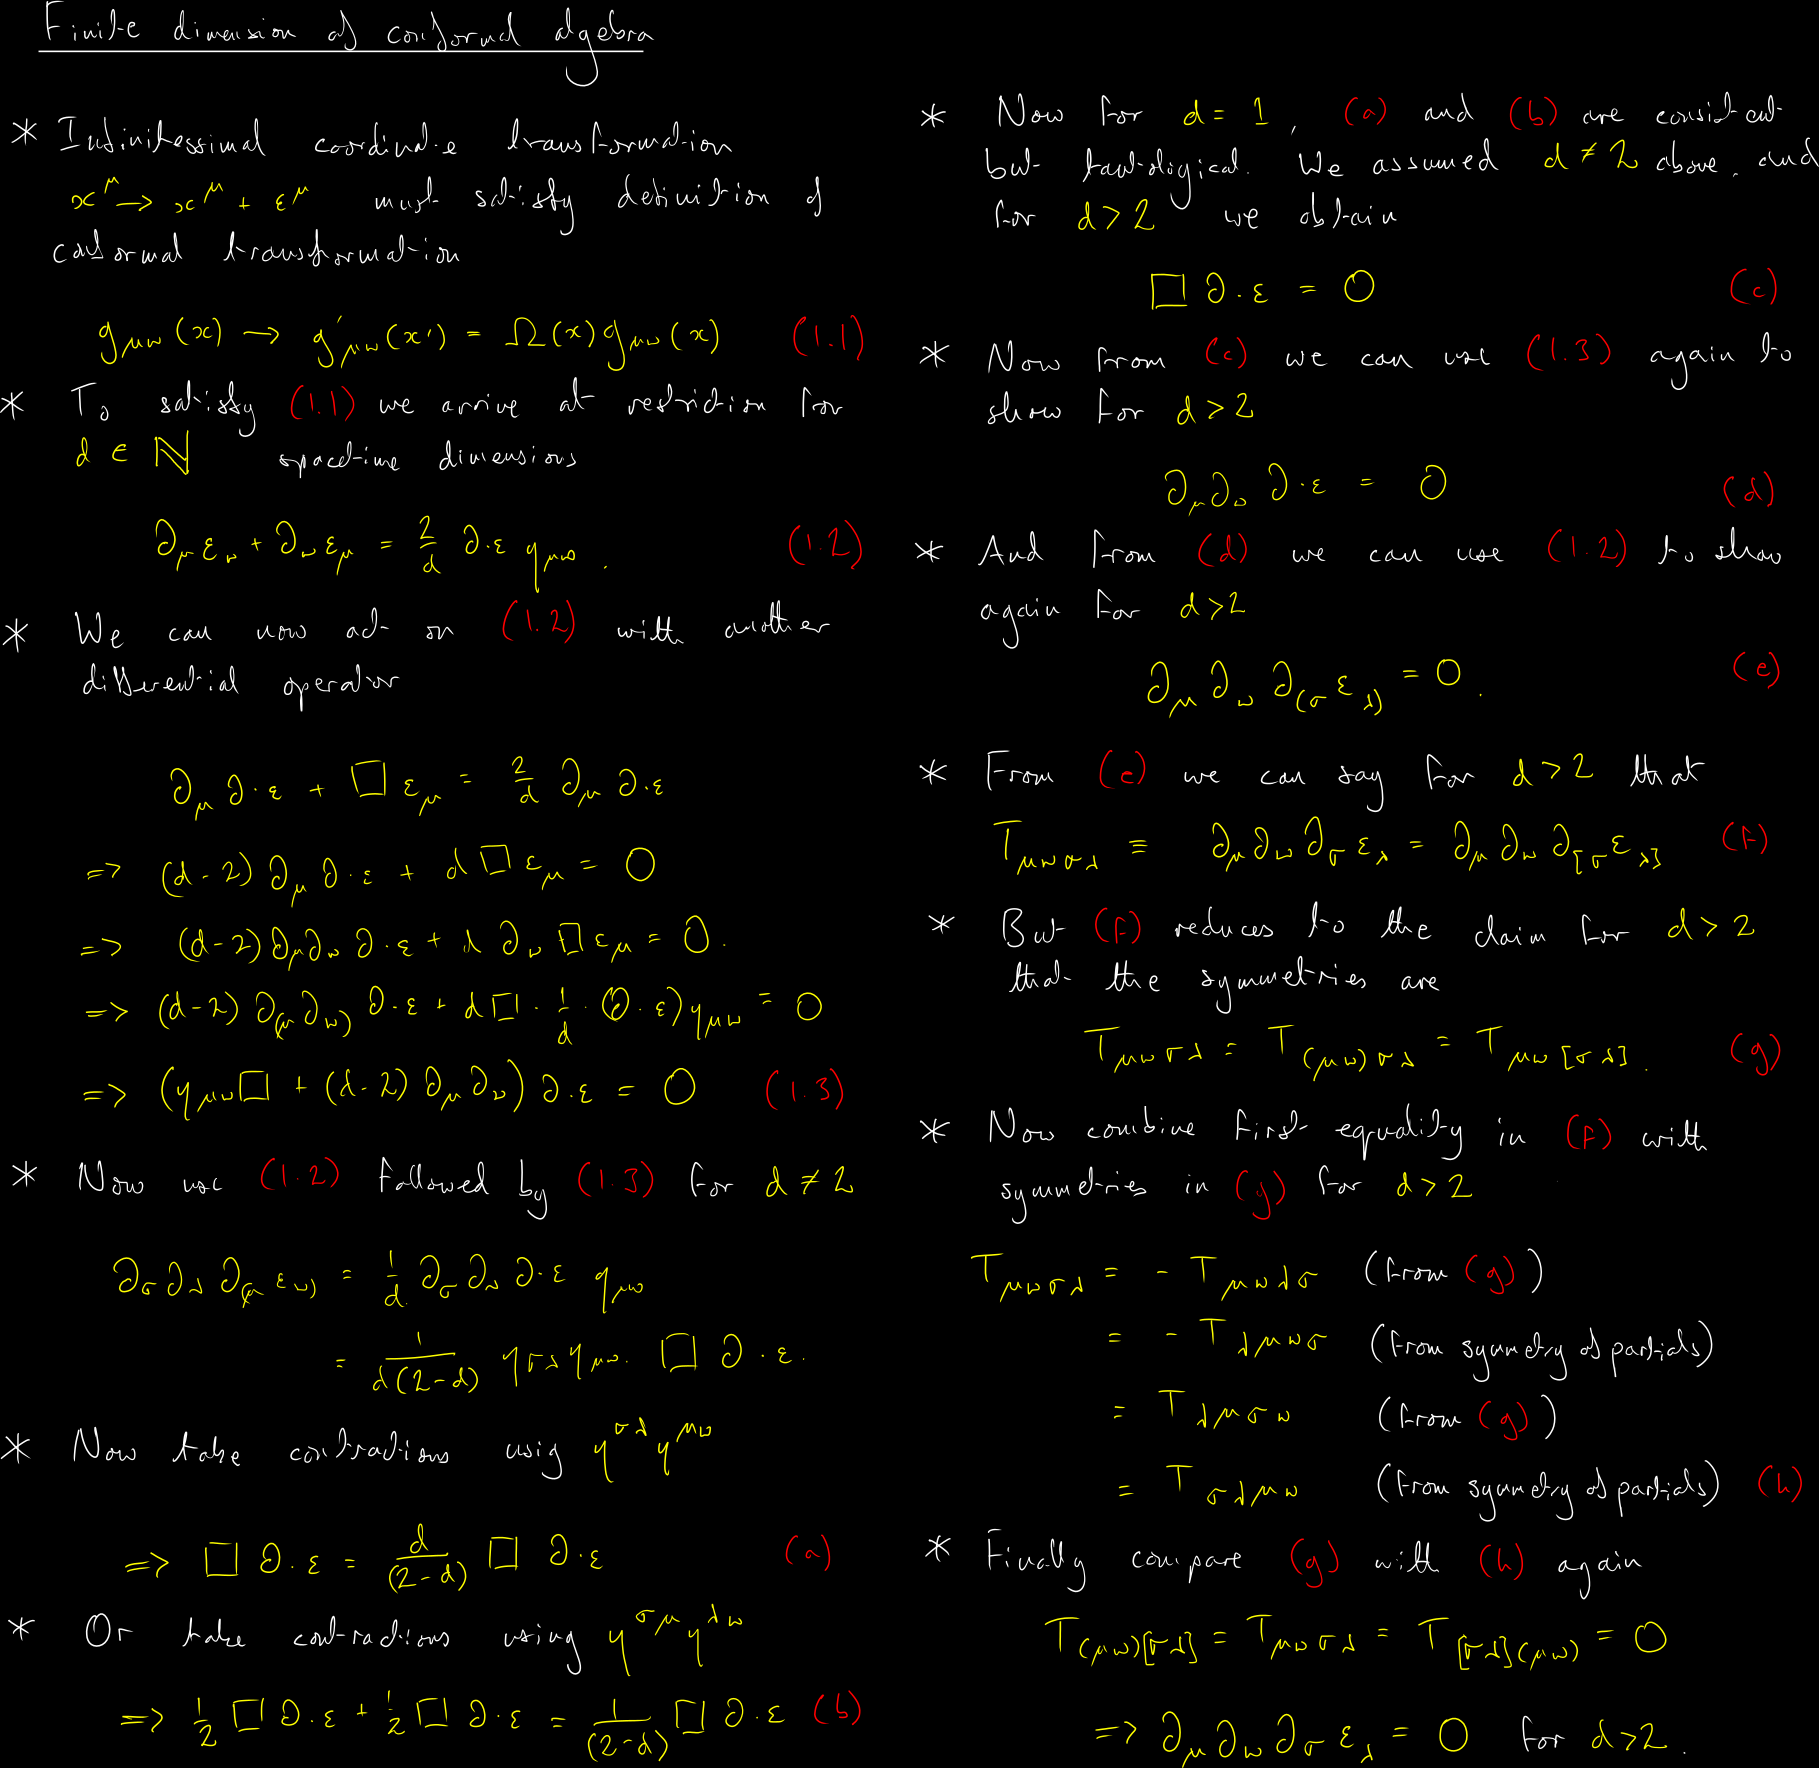 Finite dimension of conformal algebra
* Infinitessimal coordinate transformation
x^μ → x^μ + ε^μ must satisfy definition of
conformal transformation
g_{μν}(x) → g'_{μν}(x') = Ω(x) g_{μν}(x) (1.1)
* To satisfy (1.1) we arrive at restriction for
d ∈ ℕ spacetime dimensions
∂_μ ε_ν + ∂_ν ε_μ = 2/d ∂·ε η_{μν} . (1.2)
* We can now act on (1.2) with another
differential operator
∂_μ ∂·ε + □ ε_μ = 2/d ∂_μ ∂·ε
=> (d-2) ∂_μ ∂·ε + d □ ε_μ = 0
=> (d-2) ∂_μ ∂_ν ∂·ε + d ∂_ν □ ε_μ = 0.
=> (d-2) ∂_(μ ∂_ν) ∂·ε + d □ · 1/d · (∂·ε) η_{μν} = 0
=> (η_{μν} □ + (d-2) ∂_μ ∂_ν) ∂·ε = 0 (1.3)
* Now use (1.2) followed by (1.3) for d ≠ 2
∂_σ ∂_λ ∂_(μ ε_ν) = 1/d ∂_σ ∂_λ ∂·ε η_{μν}
= 1/(d(2-d)) η_{σλ} η_{μν} · □ ∂·ε.
* Now take contractions using η^{σλ} η^{μν}
=> □ ∂·ε = d/(2-d) □ ∂·ε (a)
* Or take contractions using η^{σμ} η^{λν}
=> 1/2 □ ∂·ε + 1/2 □ ∂·ε = 1/(2-d) □ ∂·ε (b)
* Now for d = 1, (a) and (b) are consistent
but tautological. We assumed d ≠ 2 above, and
for d > 2 we obtain
□ ∂·ε = 0 (c)
* Now from (c) we can use (1.3) again to
show for d > 2
∂_μ ∂_ν ∂·ε = 0 (d)
* And from (d) we can use (1.2) to show
again for d > 2
∂_μ ∂_ν ∂_(σ ε_λ) = 0 . (e)
* From (e) we can say for d > 2 that
T_{μνσλ} ≡ ∂_μ ∂_ν ∂_σ ε_λ = ∂_μ ∂_ν ∂_[σ ε_λ] (f)
* But (f) reduces to the claim for d > 2
that the symmetries are
T_{μνσλ} = T_{(μν)σλ} = T_{μν[σλ]} . (g)
* Now combine first equality in (f) with
symmetries in (g) for d > 2
T_{μνσλ} = - T_{μνλσ} (from (g))
= - T_{λμνσ} (from symmetry of partials)
= T_{λμσν} (from (g))
= T_{σλμν} (from symmetry of partials) (h)
* Finally compare (g) with (h) again
T_{(μν)[σλ]} = T_{μνσλ} = T_{[σλ](μν)} = 0
=> ∂_μ ∂_ν ∂_σ ε_λ = 0 for d > 2 .